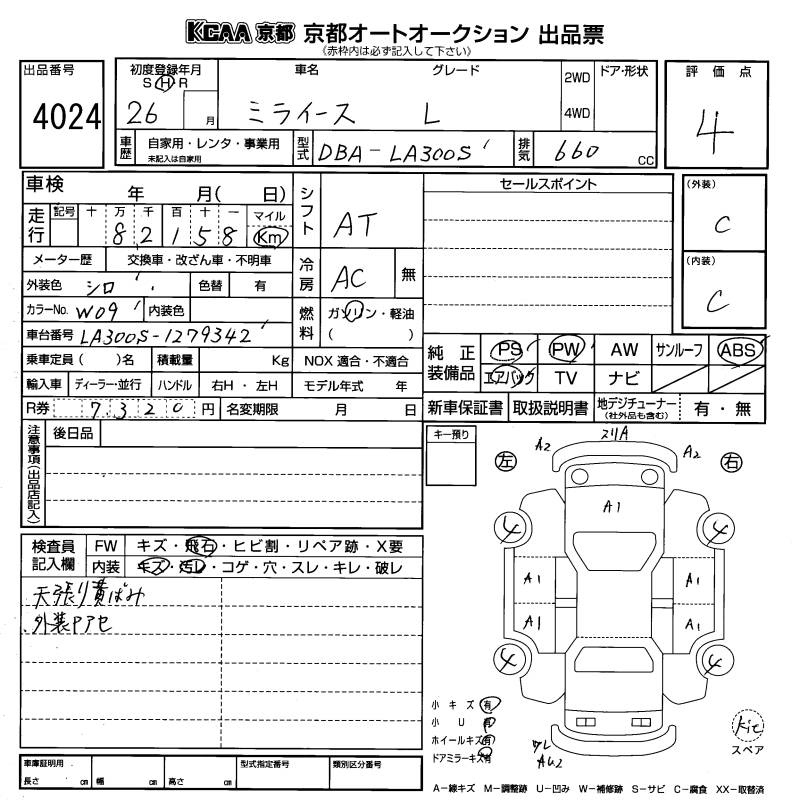 KCAA 京都 京都オートオークション 出品票
(赤枠内は必ず記入して下さい)
出品番号
4024
初度登録年月
S H R
26 月
車名
ミライース
グレード
L
2WD
4WD
ドア・形状
評価点
4
車歴
自家用・レンタ・事業用
未記入は自家用
型式
DBA-LA300S
排気
660 CC
車検 年 月( 日)
走行
記号 十 万 千 百 十 一 マイル
8 2 1 5 8 Km
メーター歴 交換車・改ざん車・不明車
外装色 シロ 色替 有
カラーNo. W09 内装色
車台番号 LA300S-1279342
乗車定員( )名 積載量 Kg
輸入車 ディーラー・並行 ハンドル 右H・左H
R券 7,320円 名変期限 月 日
シフト
AT
冷房
AC 無
燃料
ガソリン・軽油
( )
NOX 適合・不適合
モデル年式 年
セールスポイント
(外装)
C
(内装)
C
純正装備品
PS PW AW サンルーフ ABS
エアバッグ TV ナビ
新車保証書 取扱説明書 地デジチューナー(社外品も含む) 有・無
注意事項(出品店記入)
後日品
キー預り
検査員記入欄
FW キズ・飛石・ヒビ割・リペア跡・X要
内装 キズ・汚レ・コゲ・穴・スレ・キレ・破レ
天張り黄ばみ
外装アセ
左 右
A2 スリA A2
A1
4 4
A1 A1
A1 A1
4 4
ワレ
AU2
小キズ 有
小U 有
ホイールキズ 有
ドアミラーキズ 有
Kit
スペア
車庫証明用
長さ cm 幅 cm 高さ cm
型式指定番号
類別区分番号
A-線キズ M-調整跡 U-凹み W-補修跡 S-サビ C-腐食 XX-取替済